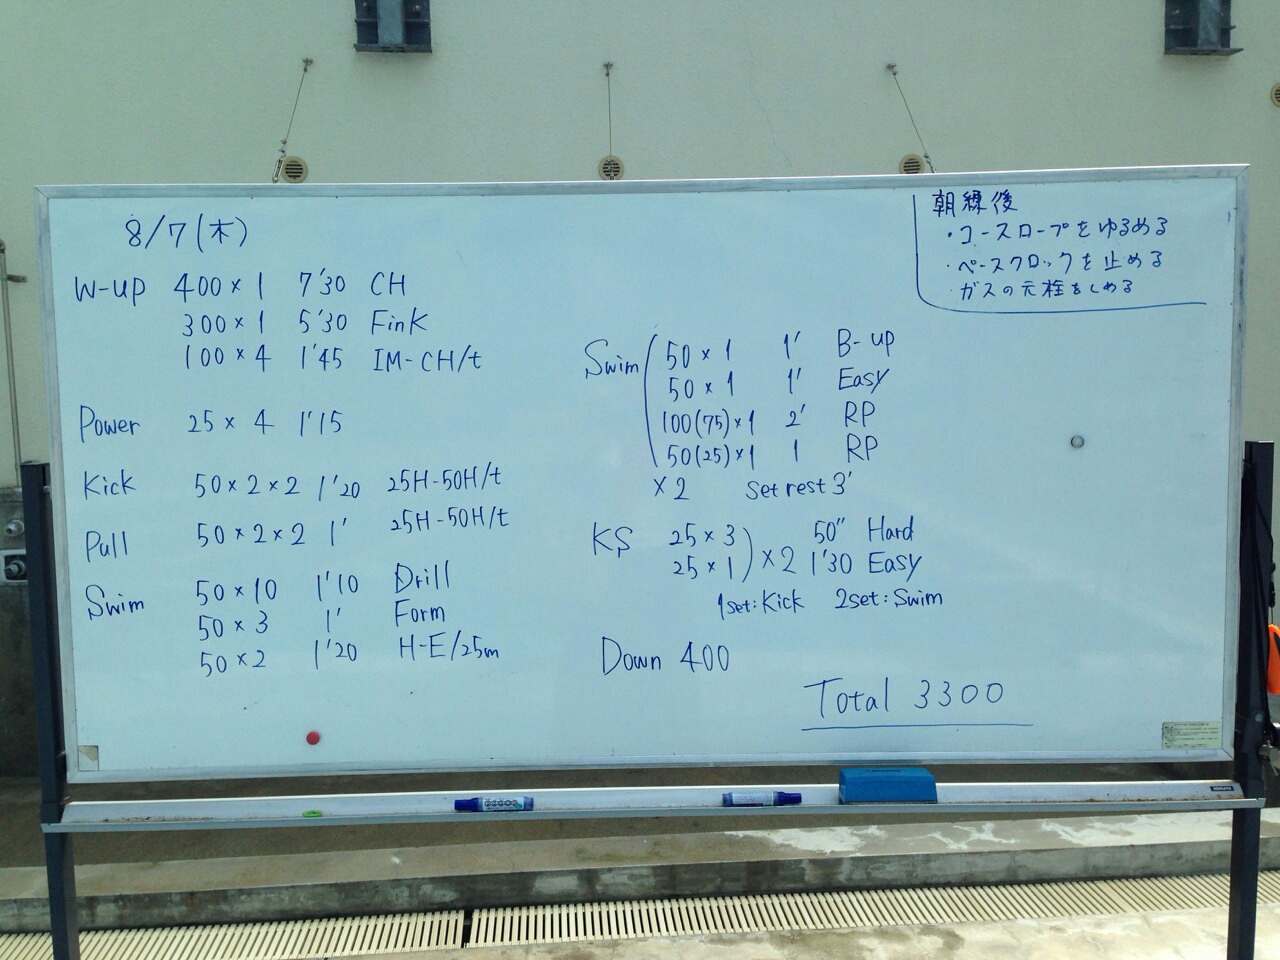 8/7(木)
W-up 400×1 7'30 CH
300×1 5'30 FinK
100×4 1'45 IM-CH/t
Power 25×4 1'15
Kick 50×2×2 1'20 25H-50H/t
Pull 50×2×2 1' 25H-50H/t
Swim 50×10 1'10 Drill
50×3 1' Form
50×2 1'20 H-E/25m
朝練後
・コースロープをゆるめる
・ペースクロックを止める
・ガスの元栓をしめる
Swim 50×1 1' B-up
50×1 1' Easy
100(75)×1 2' RP
50(25)×1 1 RP
×2 Set rest 3'
KS 25×3 50" Hard
25×1 ×2 1'30 Easy
1set:Kick 2set:Swim
Down 400
Total 3300
KOKUYO